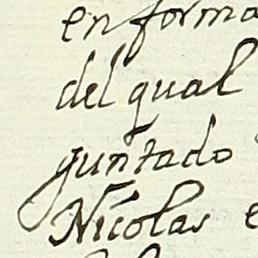 en forma
del qual
guntado
Nicolas e